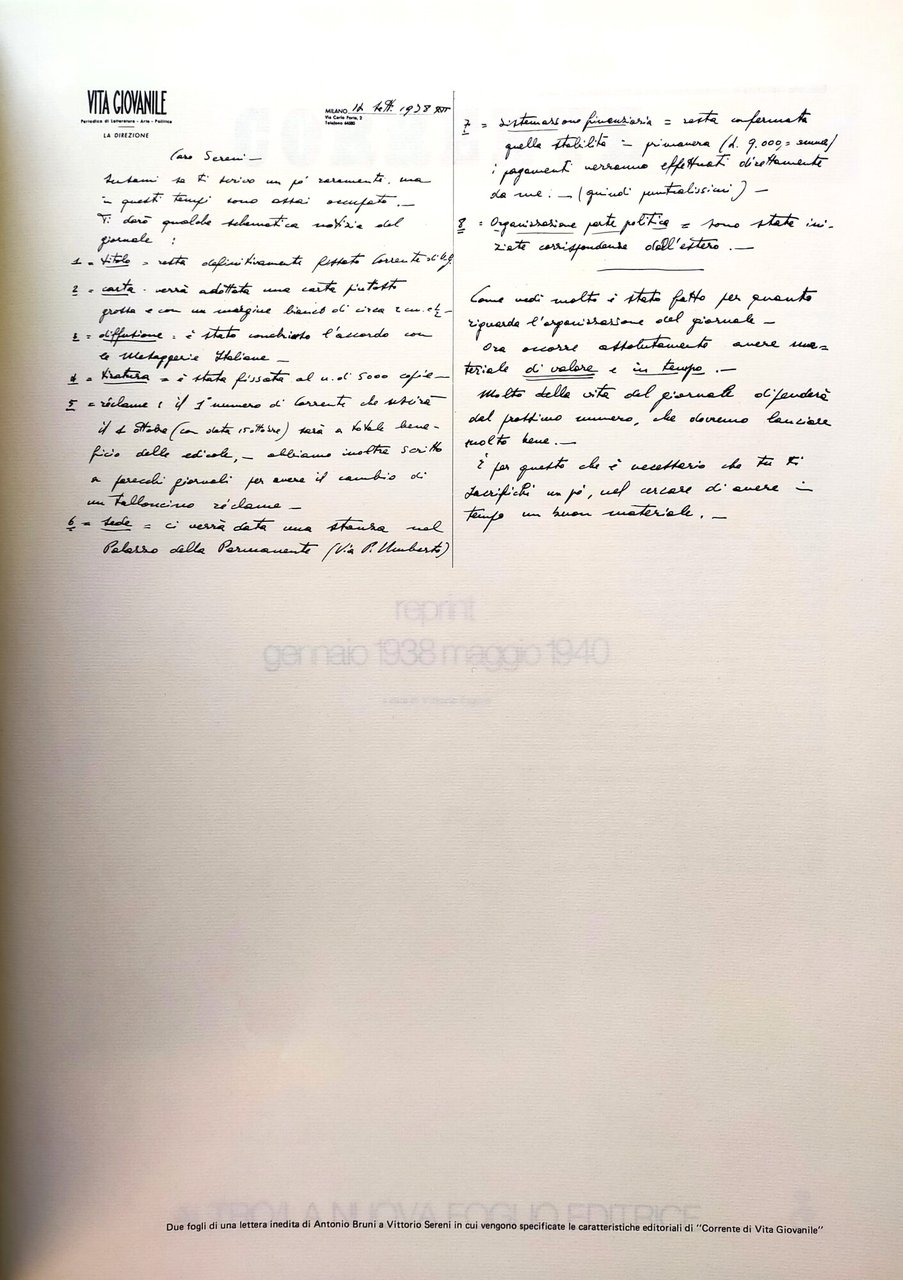 VITA GIOVANILE
Periodico di Letteratura - Arte - Politica
LA DIREZIONE
MILANO, sett. 1938 XVI
Via Carlo Porta, 2
Telefono 66580
Caro Sereni —
scusami se ti scrivo un pó raramente, ma
in questi tempi sono assai occupato. —
Ti darò qualche schematica notizia del
giornale :
1 = titolo = resta definitivamente fissato Corrente di V.G.
2 = carta - verrà adottata una carta piutosto
grossa e con un margine bianco di circa 2 cm. e ½ —
3 = diffusione = è stato concluso l'accordo con
le Messaggerie Italiane —
4 = tiratura = è stata fissata al n. di 5000 copie —
5 = réclame : il 1° numero di Corrente che uscirà
il 1 ottobre (con data 15 ottobre) sarà a totale bene-
ficio delle edicole, — abbiamo inoltre scritto
a parecchi giornali per avere il cambio di
un talloncino réclame —
6 = sede = ci verrà data una stanza nel
Palazzo della Permanente (Via P. Umberto)
7 = sistemazione finanziaria = resta confermata
quella stabilita in primavera (L. 9.000,= annue)
i pagamenti verranno effettuati direttamente
da me. — (quindi puntualissimi) —
8 = Organizzazione parte politica = sono state ini-
ziate corrispondenze dall'estero. —
Come vedi molto è stato fatto per quanto
riguarda l'organizzazione del giornale —
Ora occorre assolutamente avere ma=
teriale di valore e in tempo. —
Molto della vita del giornale dipenderà
dal prossimo numero, che dovremo lanciare
molto bene. —
È per questo che è necessario che tu ti
sacrifichi un pó, nel cercare di avere in
tempo un buon materiale. —
reprint
gennaio 1938 maggio 1940
LA NUOVA FOGLIO EDITRICE
Due fogli di una lettera inedita di Antonio Bruni a Vittorio Sereni in cui vengono specificate le caratteristiche editoriali di "Corrente di Vita Giovanile"